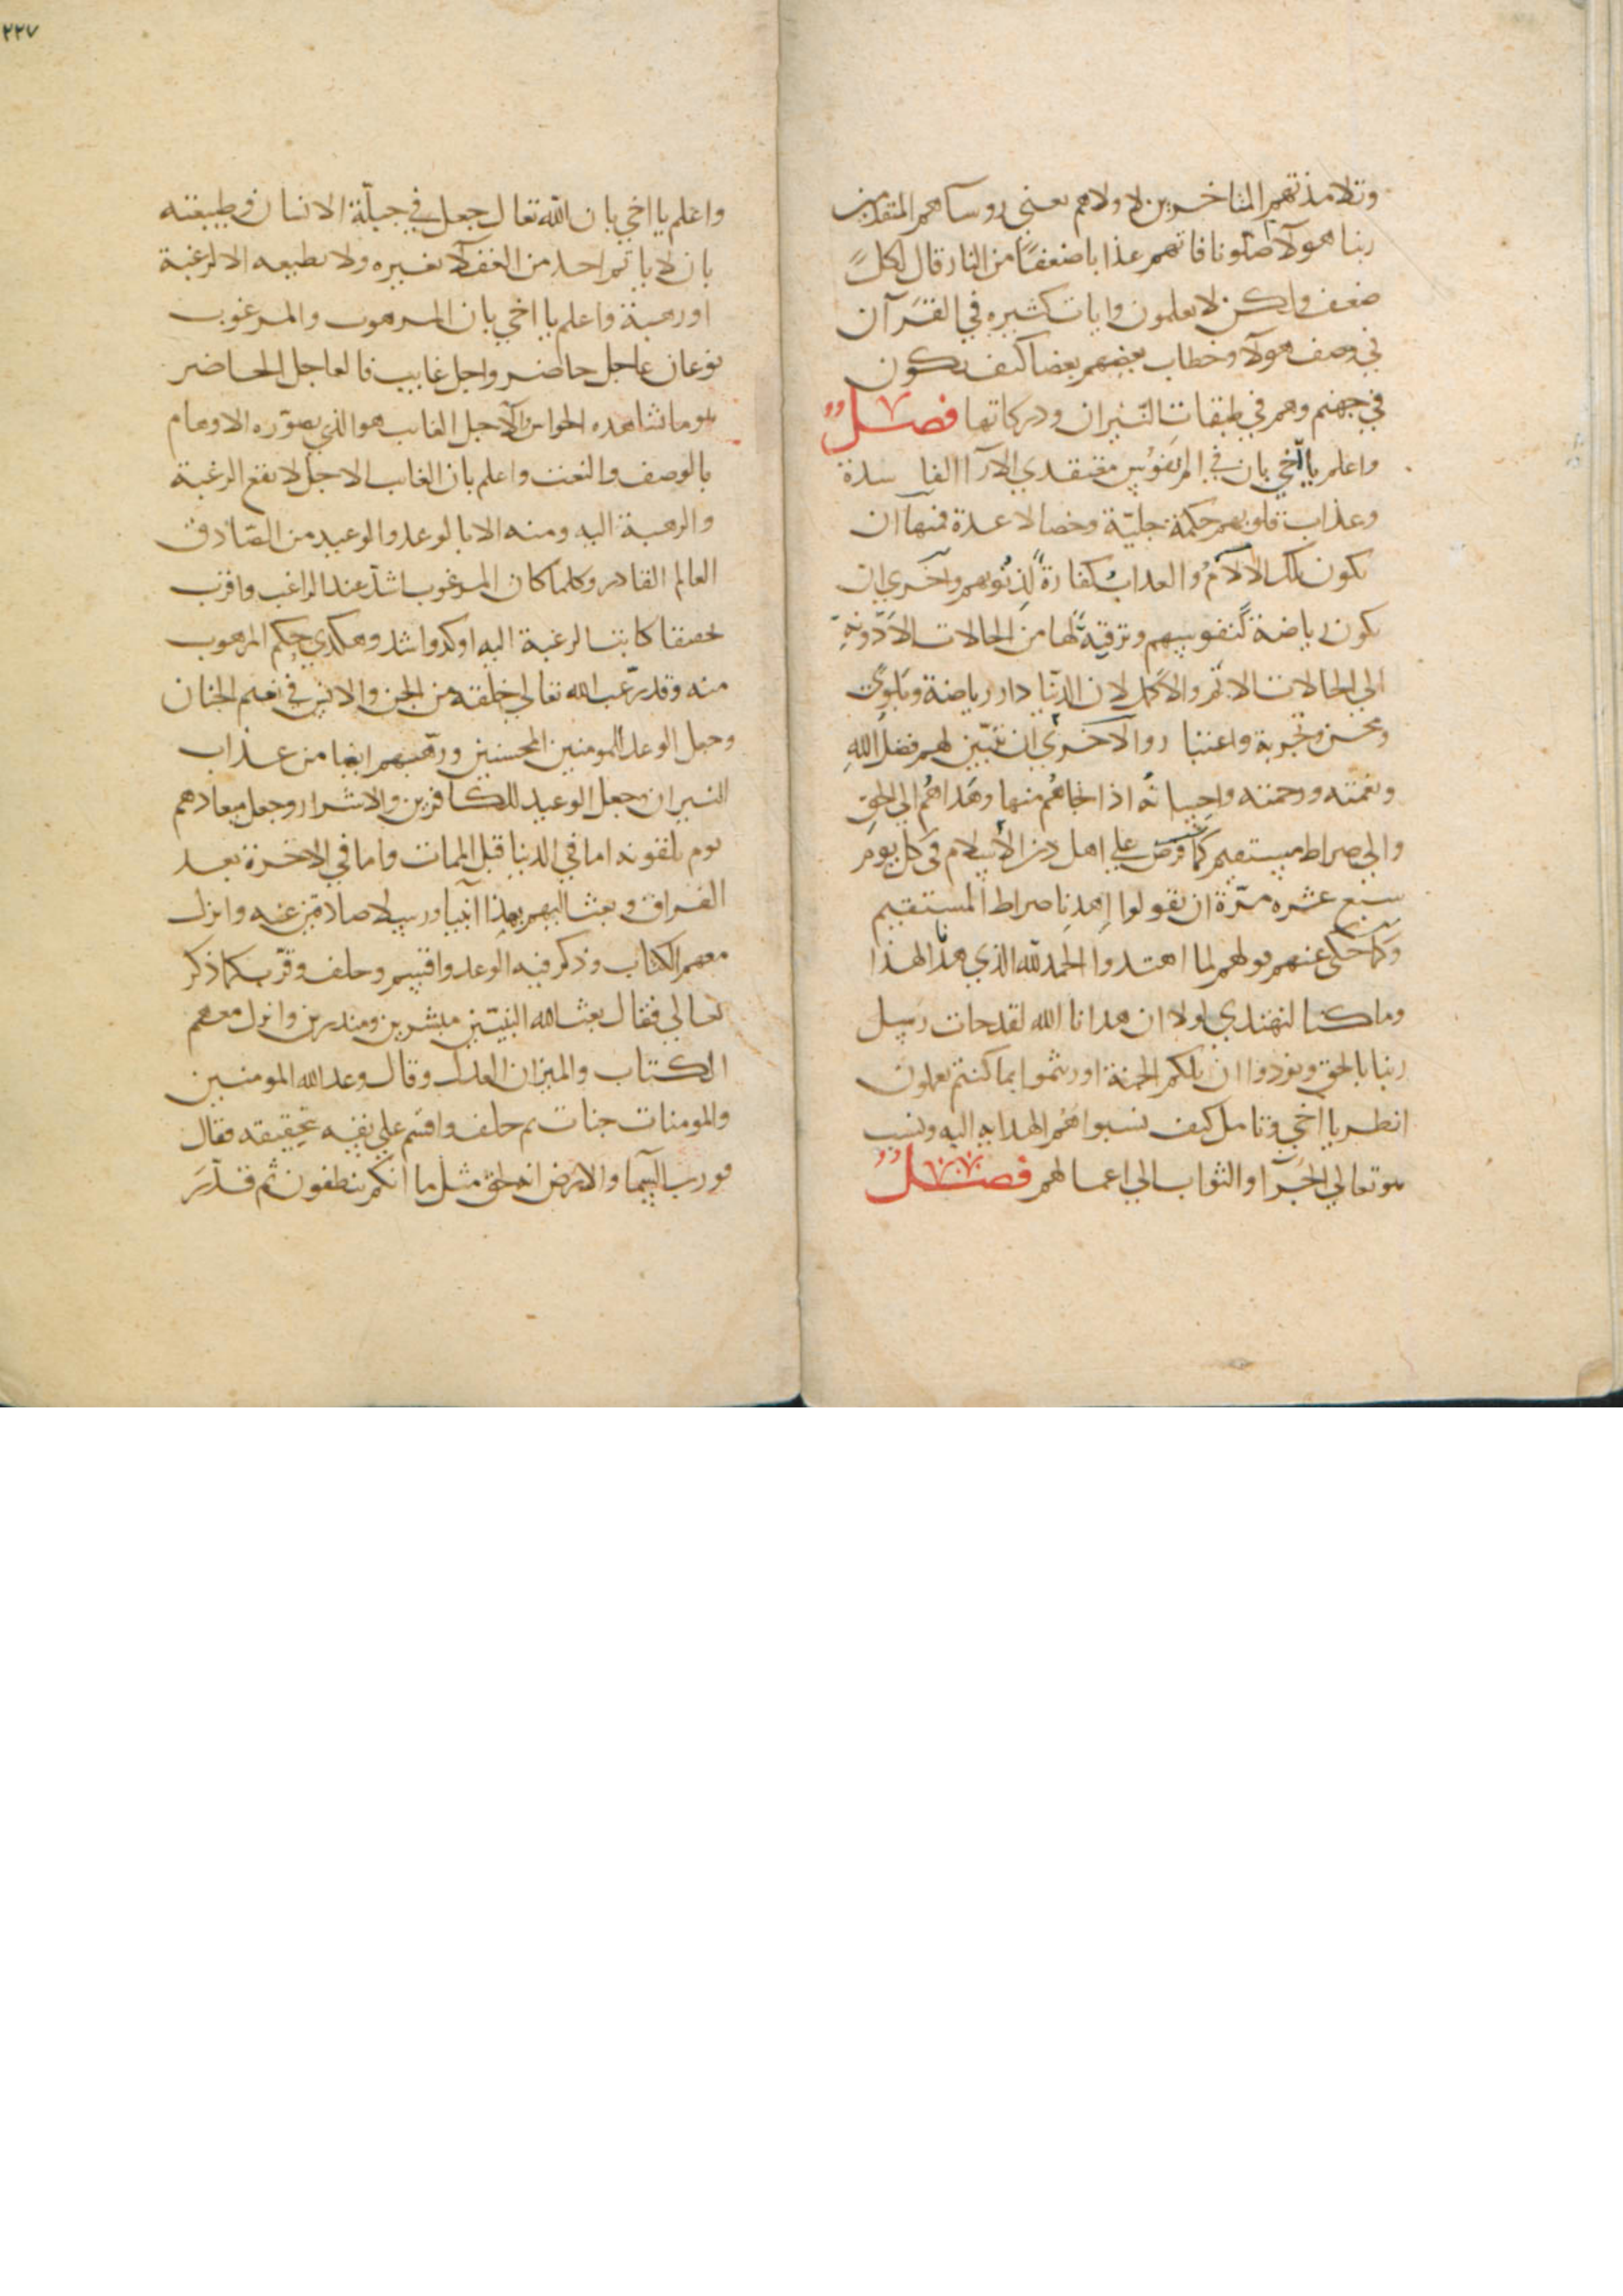 وتلامذتهم المتاخرين لاولاهم يعني روساهم المتقدمين
ربنا هولا اضلونا فاتهم عذابا ضعفا من النار قال لكل
ضعف ولكن لا يعلمون وايات كثيره في القرآن
في وصف هولا وخطاب بعضهم بعضا كيف يكون
في جهنم وهم في طبقات النيران ودركاتها فصل
واعلم يا اخي بان في الم نفوس معتقدي الآرا الفاسدة
وعذاب قلوبهم حكمة جليّة وخصالا عدة فمنها ان
يكون تلك الالآم والعذاب كفارة لذنوبهم واخري ان
يكون رياضة لنفوسهم وترقية لها من الحالات الادونة
الي الحالات الاتم والاكمل لان الدنيا دار رياضة وبلوي
ومحن وتجربة واعتبار والاخري ان تبين لهم فضل الله
ونعمته ورحمته واحسانه اذا نجاهم منها وهداهم الي الحق
والي صراط مستقيم كما فرض علي اهل دين الاسلام في كل يوم
سبع عشره مرّة ان تقولوا اهدنا صراط المستقيم
وكما حكي عنهم قولهم لما اهتدوا الحمد لله الذي هدانا لهذا
وما كنا لنهتدي لولا ان هدانا الله لقد جات رسل
ربنا بالحق ونودوا ان تلكم الجنة اورثتموها بما كنتم تعملون
انظر يا اخي وتامل كيف نسبوا هم الهدايه اليه ونسب
هو تعالي الجزآ والثواب الي اعمالهم فصل
٢٢٧
واعلم يا اخي بان الله تعالي جعل في جبلّة الانسان وطبيعته
بان لا ياتمر احد من العقلآ لغيره ولا يطيعه الا لرغبة
اورهبة واعلم يا اخي بان المرهوب والمرغوب
نوعان عاجل حاضر واجل غايب فالعاجل الحاضر
هو ما تشاهده الحواس والآجل الغايب هو الذي يصوّره الاوهام
بالوصف والنعت واعلم بان الغايب الاجل لا تقع الرغبة
والرهبة اليه ومنه الا بالوعد والوعيد من الصادق
العالم القادر وكلما كان المرغوب اشدّ عند الراغب واقرب
تحققا كانت الرغبة اليه اوكد واشد وهكذي حكم المرهوب
منه وقد رغّب الله تعالي خلقه من الجن والانس في نعيم الجنان
وجعل الوعد المومنين المحسنين ورهّبهم ايضا من عذاب
النيران وجعل الوعيد للكافرين والاشرار وجعل ميعادهم
يوم يلقونه اما في الدنيا قبل الممات واما في الاخرة بعد
الفراق وبعث اليهم بهذا انبيا ورسلا صادقين عنه وانزل
معهم الكتاب وذكر فيه الوعد واقسم وحلف وقرّب كما ذكر
تعالي فقال بعث الله النبيّين مبشرين ومنذرين وانزل معهم
الكتاب والميزان العدل وقال وعد الله المومنين
والمومنات جنات ثم حلف واقسم علي نفسه تحقيقه فقال
فورب السما والارض انه لحق مثل ما انكم تنطقون ثم قدّر